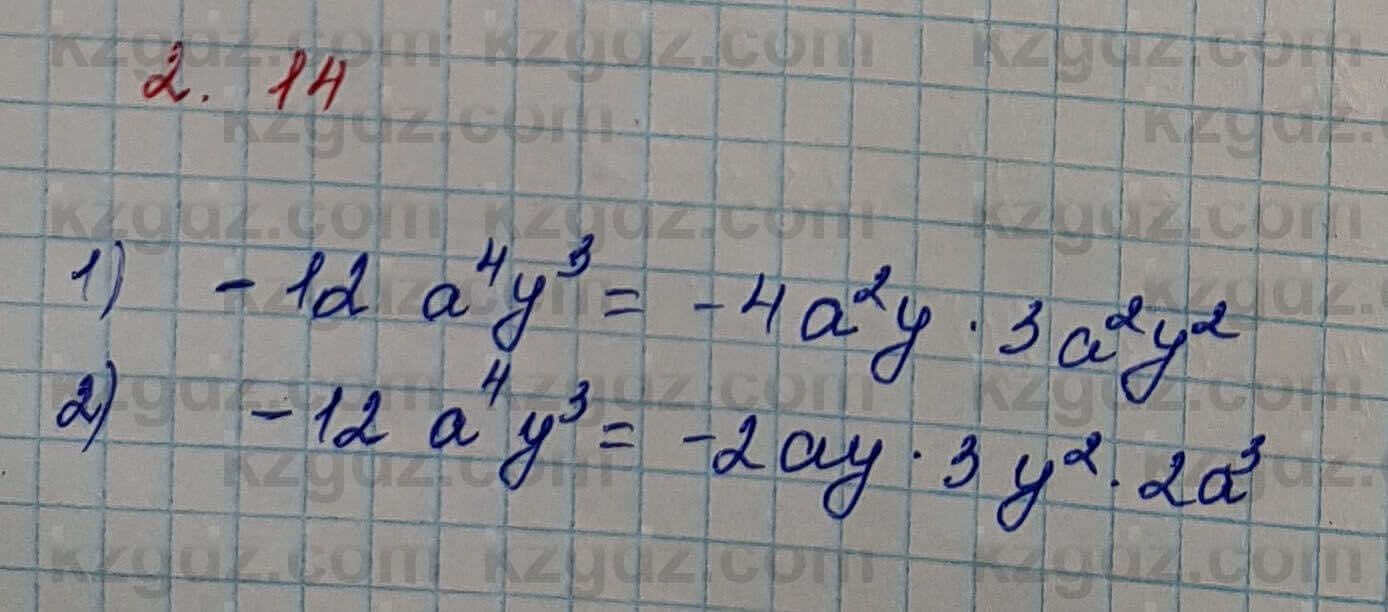 2. 14
1) -12 a⁴y³ = -4a²y · 3a²y²
2) -12 a⁴y³ = -2ay · 3y² · 2a³
kzgdz.com kzgdz.com kzgdz.com
kzgdz.com kzgdz.
kzgdz.com kzgdz.com kzgdz.com
kzgdz.com kzgdz.
kzgdz.com kzgdz.com kzgdz.com
kzgdz.com kzgdz.
kzgdz.com kzgdz.com kzgdz.com